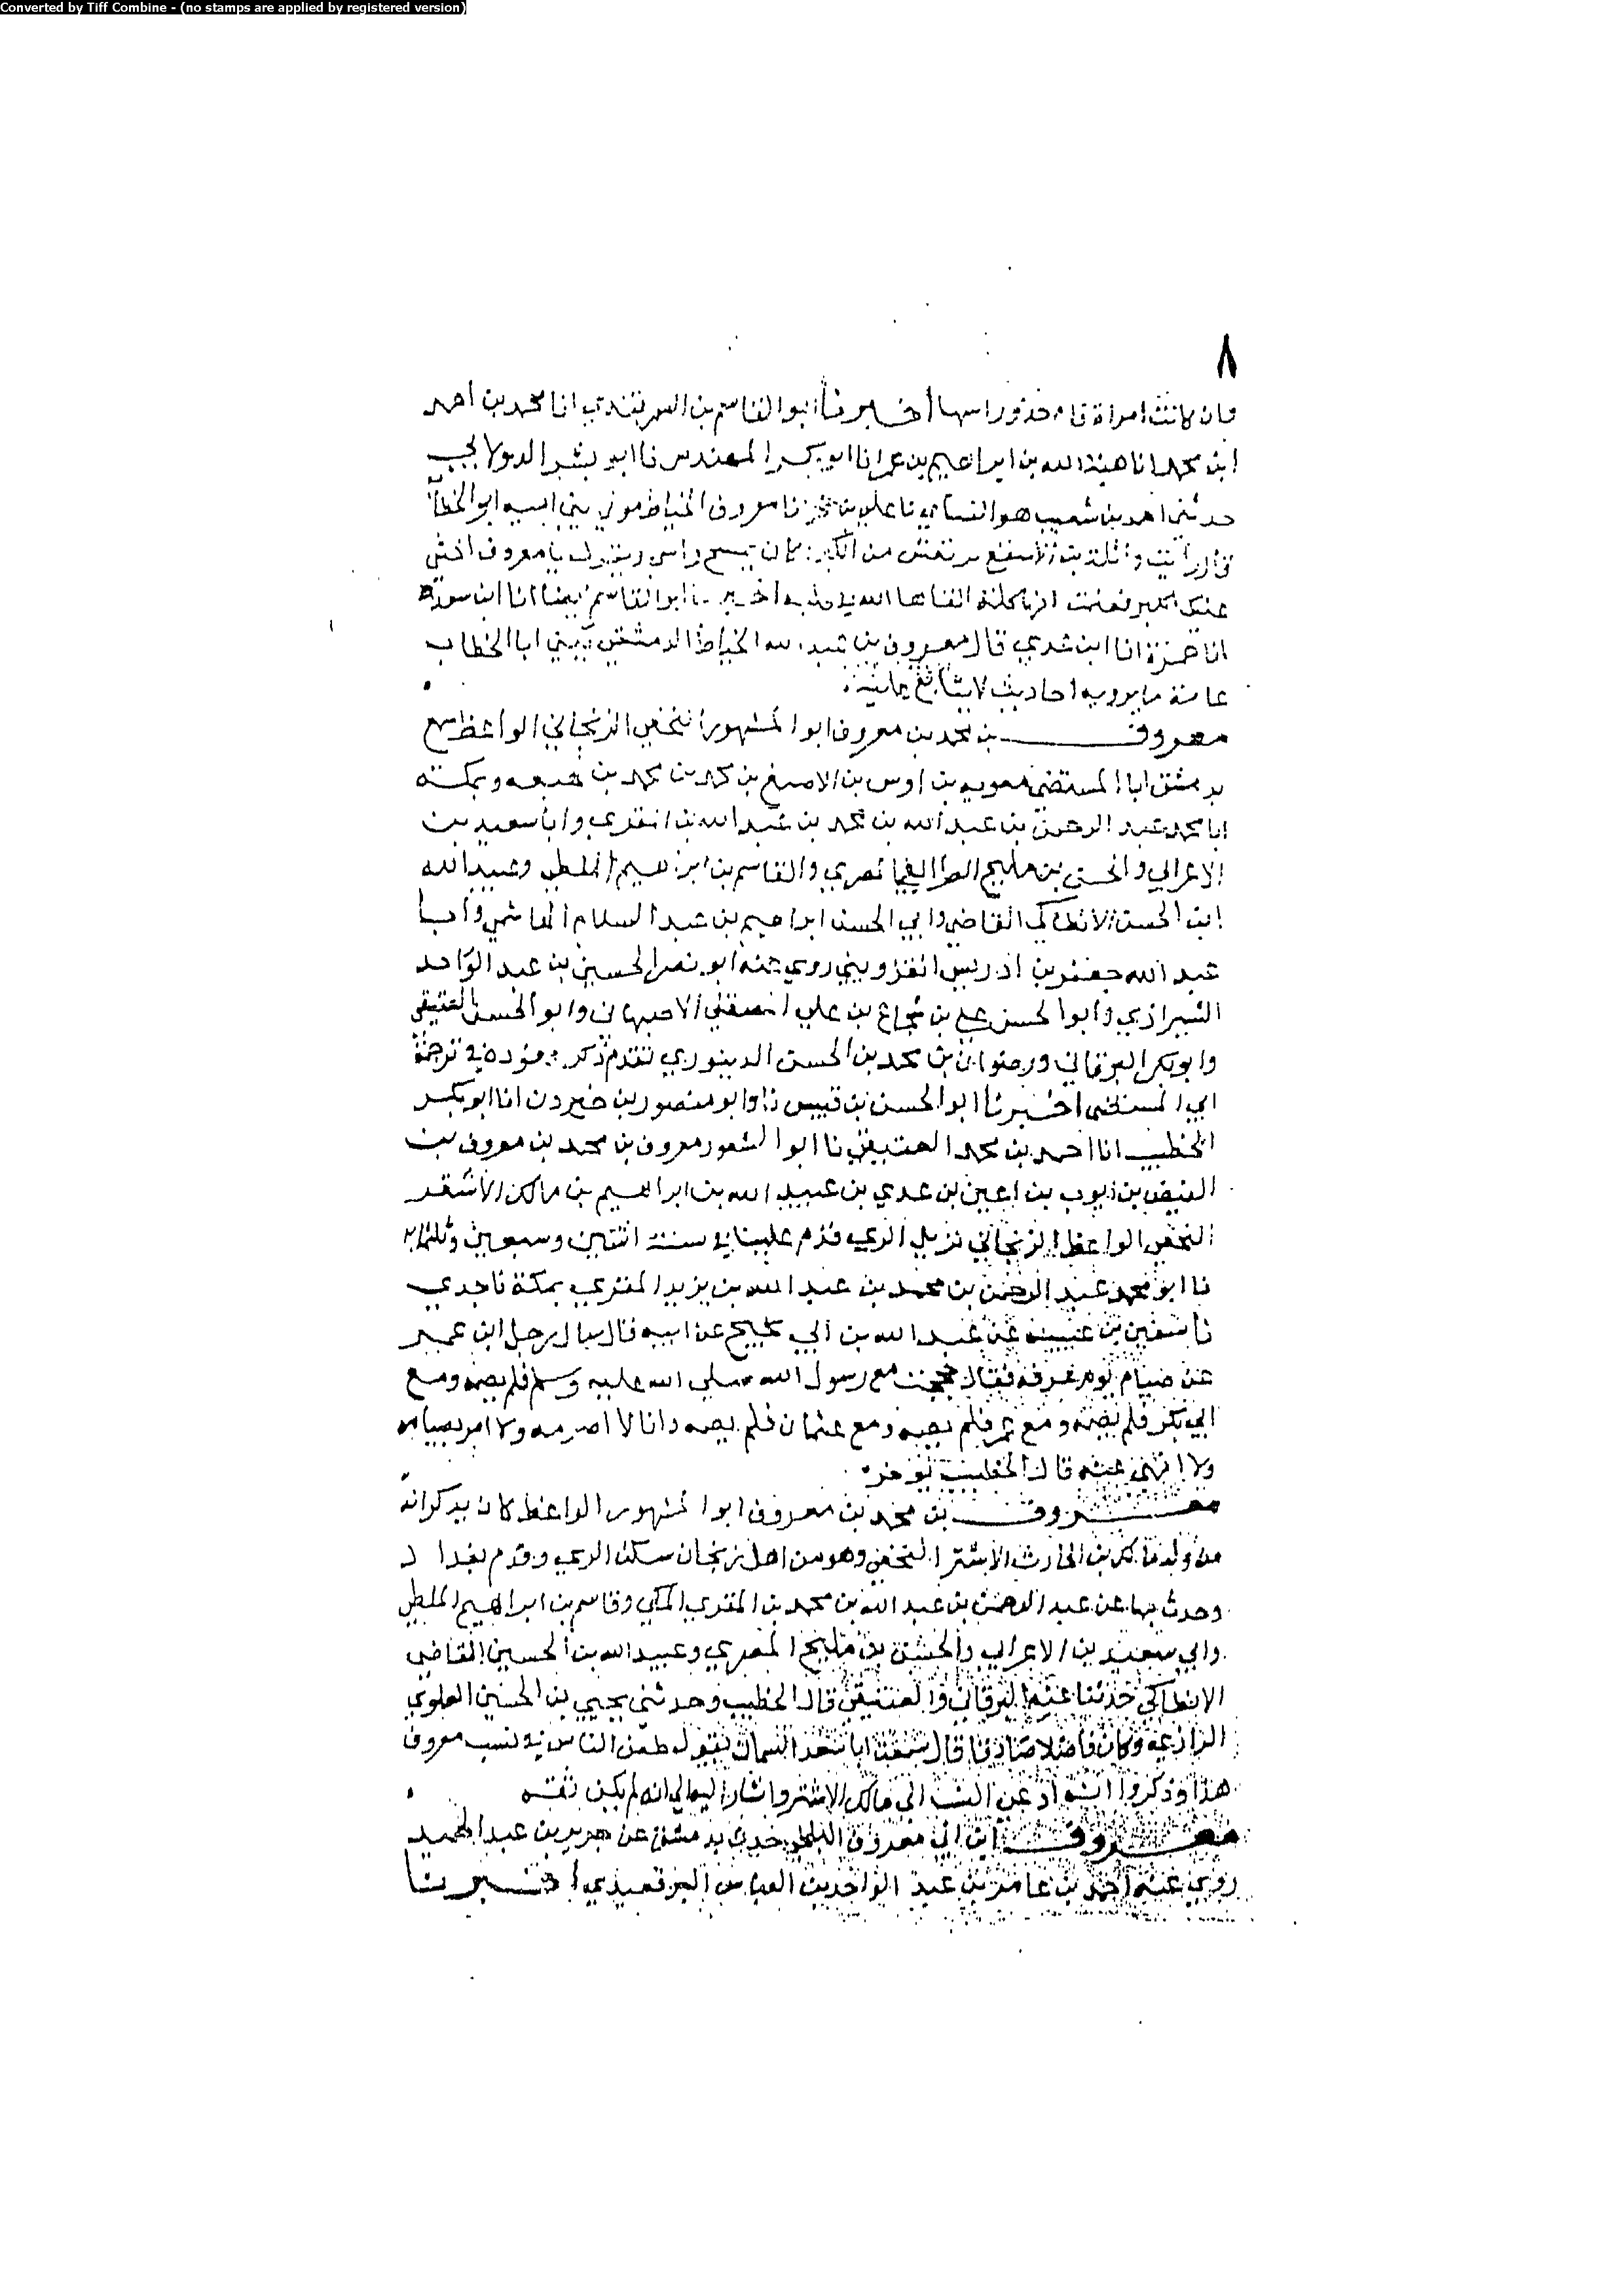 Converted by Tiff Combine - (no stamps are applied by registered version)
٨
وان كانت امراة قام حذو راسها اخبرنا ابو القاسم بن السمرقندي انا محمد بن احمد
ابن محمد انا هبة الله بن ابراهيم بن عمر انا ابو بكر المهندس نا ابو بشر الدولابي
حدثني احمد بن شعيب هو النسائي نا علي بن حجر نا معروف الخياط مولى بني اميه ابو الخطاب
رايت واثلة بن الاسقع من الكبر كان يمسح راسي ويقول يا معروف
عنك الكبر انها كلمة القاها الله في قلبه اخبرنا ابو القاسم ايضا انا ابن سعدة
انا حمزة انا ابن عدي قال معروف بن عبد الله الخياط الدمشقي يكنى ابا الخطاب
عامة ما يرويه احاديث لا يتابع عليه
معروف بن محمد بن معروف ابو المشهور النخعي الزنجاني الواعظ سمع
بدمشق ابا المستضي معويه بن اوس بن الاصبغ بن محمد بن محمد بن وبمكة
ابا محمد عبد الرحمن بن عبد الله بن محمد بن عبد الله بن المقري وابا سعيد بن
الاعرابي والحسن بن مليح الطرائفي المصري والقاسم بن ابراهيم الملطي وعبيد الله
ابن الحسن الانطاكي القاضي وابي الحسن ابراهيم بن عبد السلام الهاشمي وابا
عبد الله جعفر بن ادريس القزويني روى عنه ابو نصر الحسين بن عبد الواحد
الشيرازي وابو الحسن علي بن شجاع بن علي المصقلي الاصبهاني وابو الحسن العتيقي
وابو بكر البرقاني ورضوان بن محمد بن الحسن الدينوري تقدم ذكر في ترجمة
ابي المستضي اخبرنا ابو الحسن بن قبيس نا وابو منصور بن خيرون انا ابو بكر
الخطيب انا احمد بن محمد العتيقي نا ابو المشهور معروف بن محمد بن معروف بن
الفيض بن ايوب بن اعين بن عدي بن عبيد الله بن ابراهيم بن مالك الاشتر
النخعي الواعظ الزنجاني نزيل الري قدم علينا في سنة اثنتين وسبعين وثلثمايه
نا ابو محمد عبد الرحمن بن محمد بن عبد الله بن يزيد المقري بمكة نا جدي
نا سفين بن عيينة عن عبد الله بن ابي نجيح عن ابيه قال سال رجل ابن عمر
عن صيام يوم عرفة فقال حججت مع رسول الله صلى الله عليه وسلم فلم يصمه ومع
ابي بكر فلم يصمه ومع عمر فلم يصمه ومع عثمان فلم يصمه وانا لا اصومه ولا امر بصيامه
ولا انهى عنه قال الخطيب
معروف بن محمد بن معروف ابو المشهور الواعظ كان يذكر انه
من ولد مالك بن الحارث الاشتر النخعي وهو من اهل زنجان سكن الري وقدم بغداد
وحدث بها عن عبد الرحمن بن عبد الله بن محمد بن المقري المكي وقاسم بن ابراهيم الملطي
وابي سعيد بن الاعرابي والحسن بن مليح المصري وعبيد الله بن الحسين القاضي
الانطاكي حدثنا عنه البرقاني والعتيقي قال الخطيب وحدثني يحيى بن الحسين العلوي
الرازي وكان فاضلا صادقا قال سمعت ابا سعد السمان يقول طعن الناس في نسب معروف
هذا وذكروا انه ادعى النسب الى مالك الاشتر واشار الي الى انه لم يكن ثقة
معروف ابن ابي معروف البلخي حدث بدمشق عن جرير بن عبد الحميد
روى عنه احمد بن عامر بن عبد الواحد بن العباس البرقعيدي اخبرنا